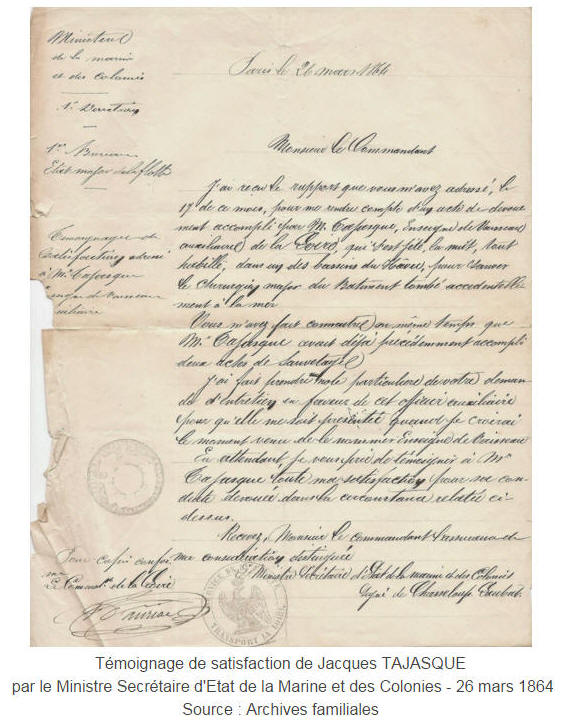 Ministère
de la marine
et des colonies
1er Bureau
Etat major de la flotte
Témoignage de
satisfaction adressé
à Mr Tajasque
enseigne de vaisseau
auxiliaire
Paris le 26 mars 1864
Monsieur le Commandant
J'ai reçu le rapport que vous m'avez adressé, le
17 de ce mois, pour me rendre compte d'un acte de dévoue-
ment accompli par M. Tajasque, Enseigne de Vaisseau
auxiliaire de la Loire, qui s'est jeté, la nuit, tout
habillé, dans un des bassins du Hâvre, pour sauver
le chirurgien major du Batiment tombé accidentelle-
ment à la mer
Vous m'avez fait connaitre en même temps que
Mr Tajasque avait déjà précédemment accompli
deux actes de Sauvetage
J'ai fait prendre note particulière de votre deman-
de d'entretien en faveur de cet officier auxiliaire
pour qu'elle me soit présentée quand je croirai
le moment venu de le nommer Enseigne de Vaisseau
En attendant, je vous prie de témoigner à Mr
Tajasque toute ma satisfaction pour sa con-
duite dévouée dans la circonstance relatée ci-
dessus.
Recevez, Monsieur le commandant l'assurance de
ma considération distinguée
Ministre Secrétaire d'Etat de la marine et des Colonies
Signé de Chasseloup Laubat
Pour copie confor-
me
Le Command. de la Loire
TRANSPORT LA LOIRE
Témoignage de satisfaction de Jacques TAJASQUE
par le Ministre Secrétaire d'Etat de la Marine et des Colonies - 26 mars 1864
Source : Archives familiales